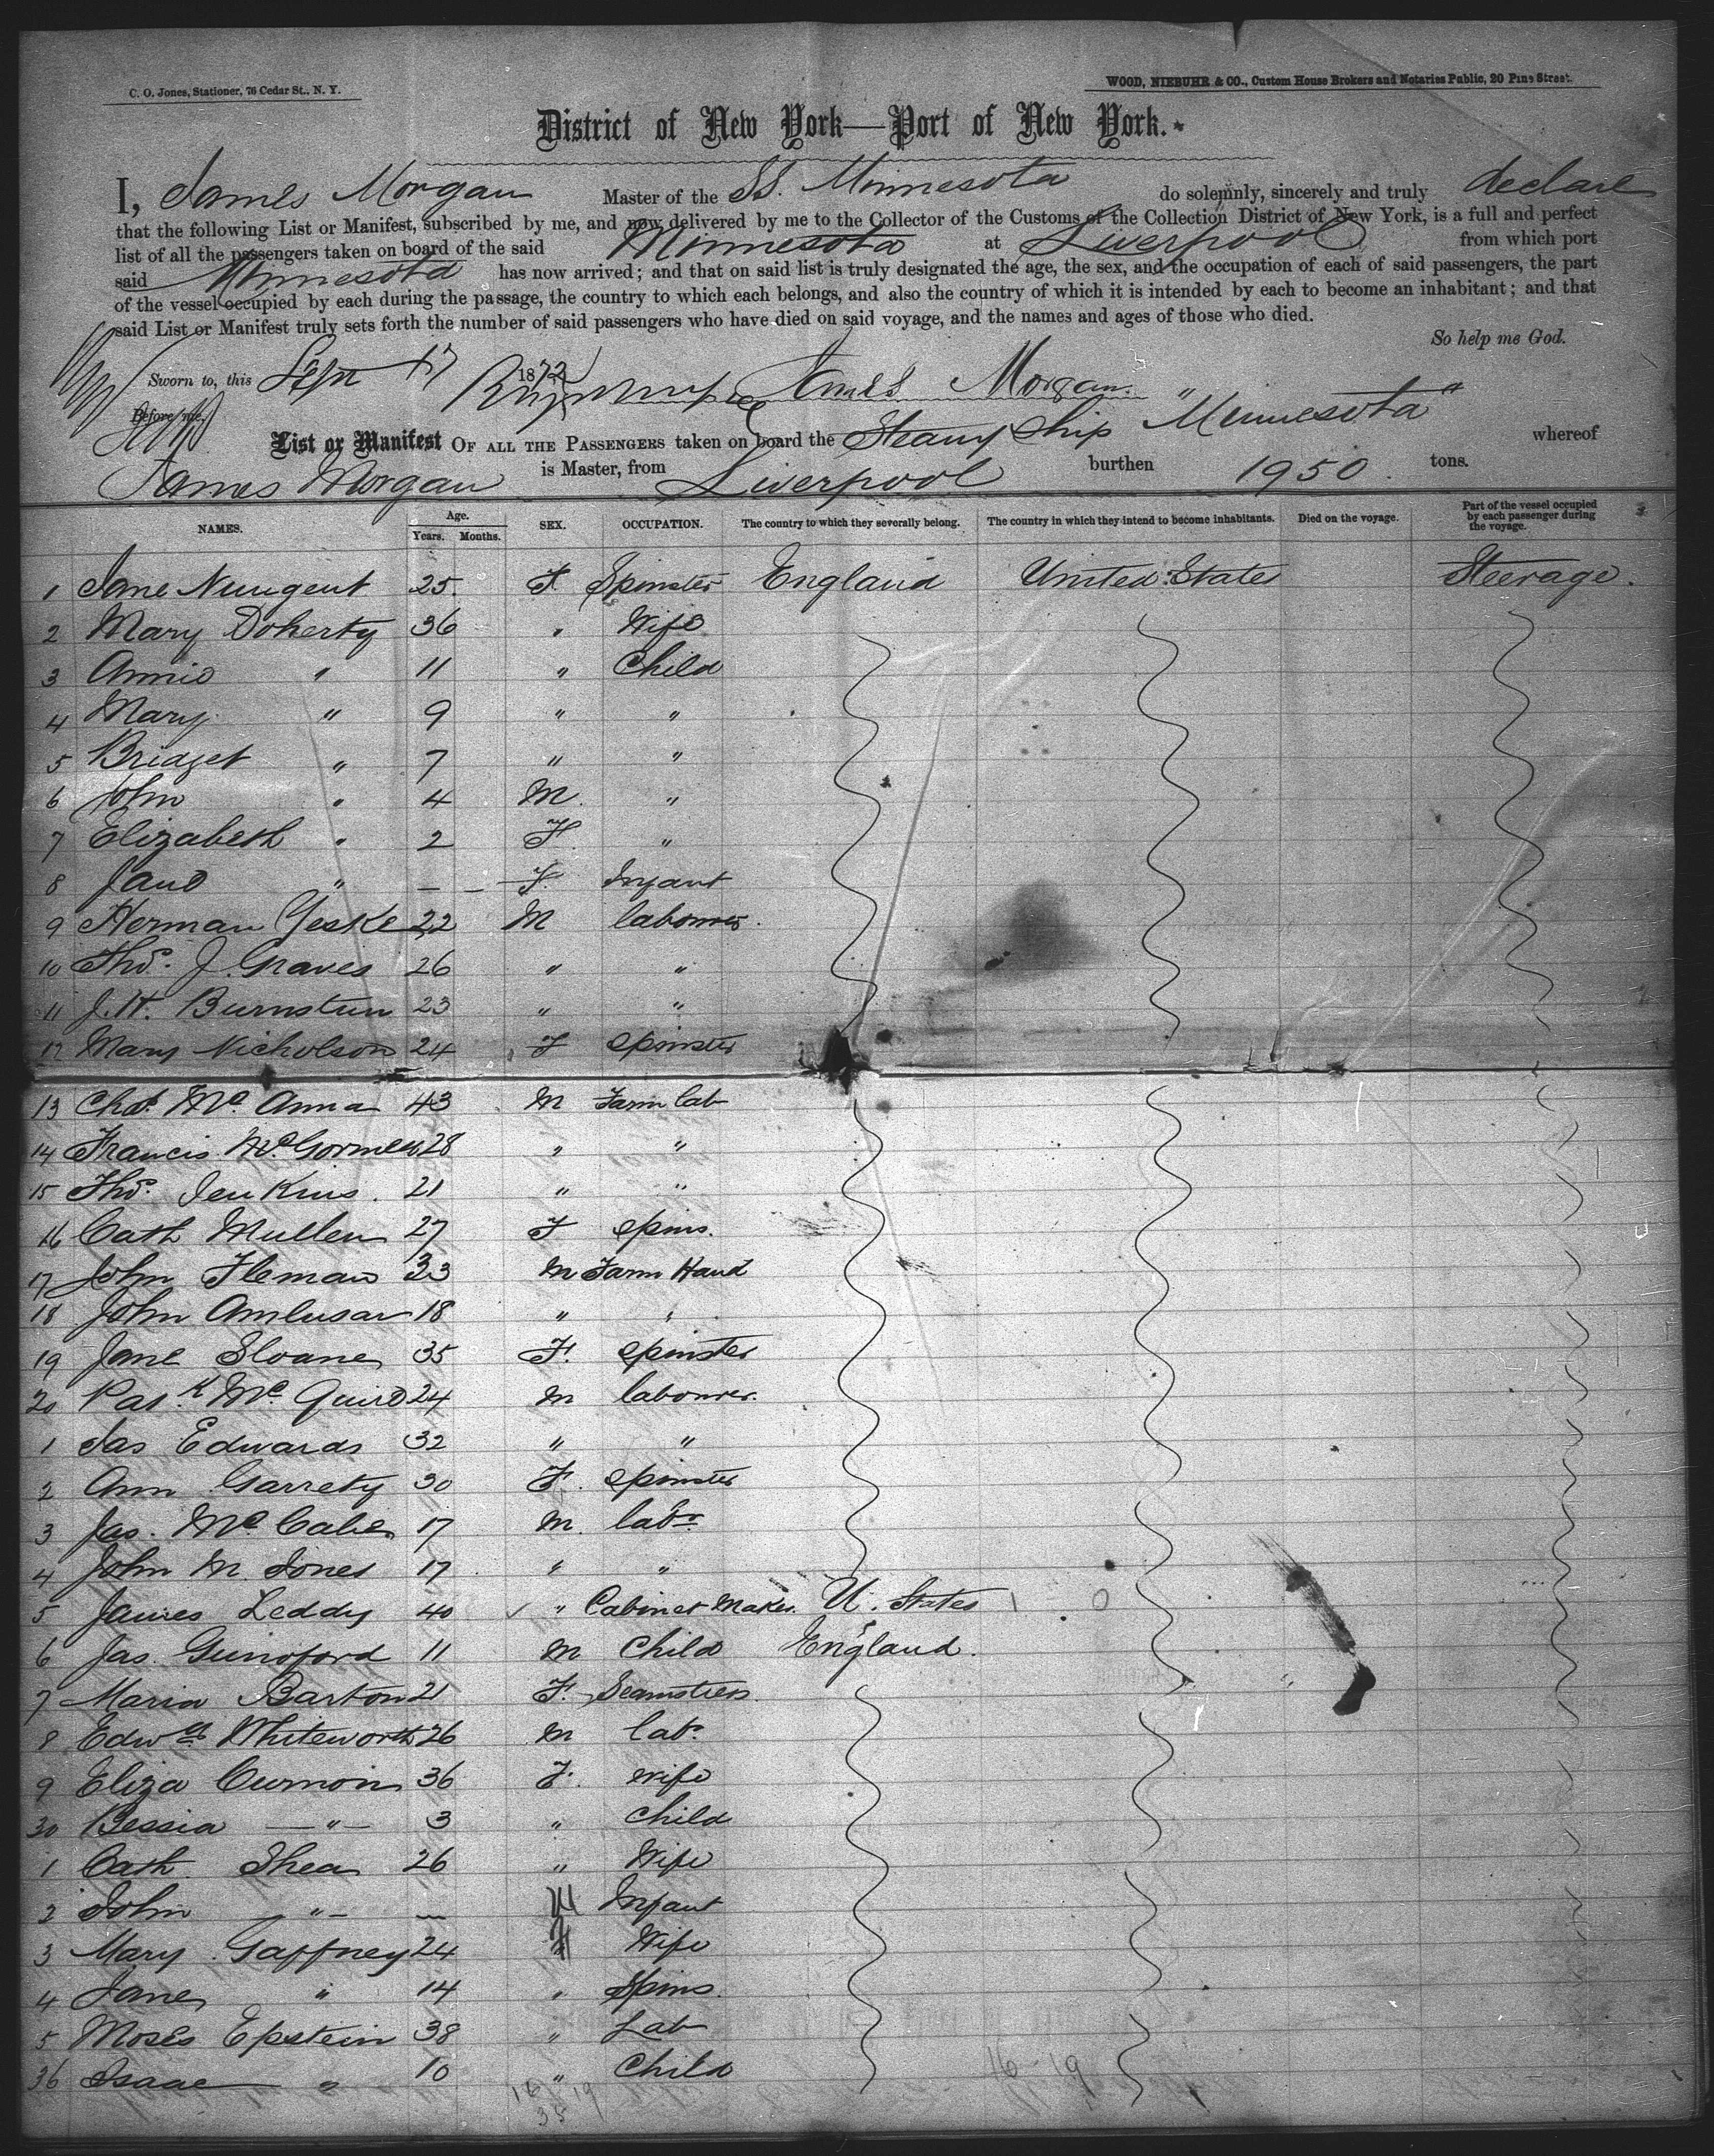 C. O. Jones, Stationer, 76 Cedar St., N. Y.
WOOD, NIEBUHR & CO., Custom House Brokers and Notaries Public, 20 Pine Street.
District of New York—Port of New York.
I, James Morgan Master of the SS. Minnesota do solemnly, sincerely and truly declare
that the following List or Manifest, subscribed by me, and now delivered by me to the Collector of the Customs of the Collection District of New York, is a full and perfect
list of all the passengers taken on board of the said Minnesota at Liverpool from which port
said Minnesota has now arrived; and that on said list is truly designated the age, the sex, and the occupation of each of said passengers, the part
of the vessel occupied by each during the passage, the country to which each belongs, and also the country of which it is intended by each to become an inhabitant; and that
said List or Manifest truly sets forth the number of said passengers who have died on said voyage, and the names and ages of those who died.
So help me God.
Sworn to, this Sept 17 1872 James Morgan.
Before me,
List or Manifest OF ALL THE PASSENGERS taken on board the Steam Ship "Minnesota" whereof
James Morgan is Master, from Liverpool burthen 1950. tons.
NAMES. Age. Years. Months. SEX. OCCUPATION. The country to which they severally belong. The country in which they intend to become inhabitants. Died on the voyage. Part of the vessel occupied by each passenger during the voyage. 3
1 Jane Nungent 25. F. Spinster England United States Steerage.
2 Mary Doherty 36 " Wife
3 Annie " 11 " Child
4 Mary " 9 " "
5 Bridget " 7 " "
6 John " 4 M. "
7 Elizabeth " 2 F. "
8 Jane " — — F. Infant
9 Herman Yeske 22 M labourer.
10 Thos. J. Graves 26 " "
11 J. H. Burnstun 23 " "
12 Mary Nicholson 24 F Spinster
13 Chas. Mc Anna 43 M Farm lab
14 Francis 28 " "
15 Thos. Jenkins. 21 " "
16 Cath Mullen 27 F Spins.
17 John Fleman 33 M Farm Hand
18 John 18 " "
19 Jane Sloane 35 F. Spinster
20 Patk. Mc Quird 24 M labourer.
1 Jas Edwards 32 " "
2 Ann Garrety 30 F. Spinster
3 Jas. Mc Cabe 17 M. labr.
4 John M. Jones 17 " "
5 James Leddy 40 " Cabinet Maker. U. States
6 Jas. 11 M Child England.
7 Maria Barton 21 F. Seamstress
8 Edwd Whiteworth 26 M labr.
9 Eliza Curnon 36 F. Wife
30 Bessia — " — 3 " Child
1 Cath Shea 26 " Wife
2 John — " — — M Infant
3 Mary Gaffney 24 F Wife
4 Jane " 14 " Spins.
5 Moses Epstein 38 " Lab
36 Isaac " 10 " Child
16 - 19
16 19
35